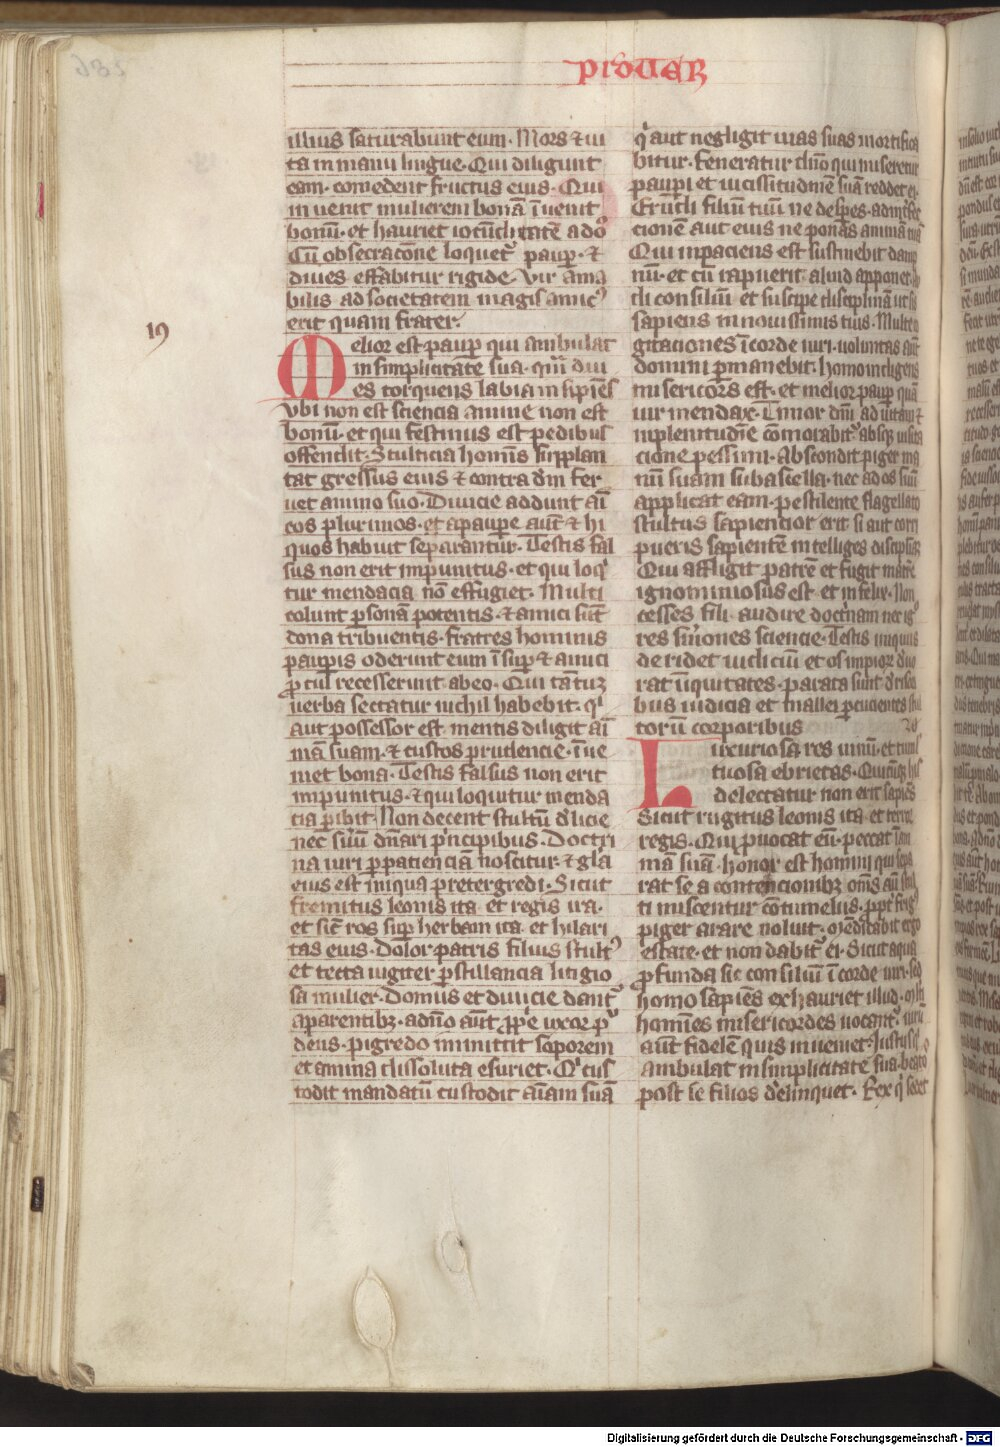 prouer
illius saturabunt eum · Mors ⁊ ui
ta in manu lingue · Qui diligunt
eam · comedent fructus eius · Qui
inuenit mulierem bonā īuenit
bonū · et hauriet iocūditatē a dño
Cū obsecracōne loquet᷑ paup̲ · ⁊
diues effabitur rigide · Vir ama
bilis ad societatem magis amicꝰ
erit quam frater ·
19
Melior est paup̲ qui ambulat
in simplicitate sua · quā diu
es torquens labia insipiēs
Vbi non est sciencia anime non est
bonū · et qui festinus est pedibus
offendit · Stulticia hominis supplan
tat gressus eius ⁊ contra dm̄ fer
uet animo suo · Diuicie addunt am̄
cos plurimos · et a paupe aut̄ ⁊ hi
quos habuit separantur · Testis fal
sus non erit impunitus · et qui loqi
tur mendacia nō effugiet · Multi
colunt p̲sonā potentis · ⁊ amici sūt
dona tribuentis · fratres hominis
paup̲is oderunt eum īsup̲ ⁊ amici
ꝓcul recesserunt ab eo · Qui tātuꝫ
uerba sectatur nichil habebit · qi
aut possessor est mentis diligit ai
mā suam · ⁊ custos prudencie · īue
niet bona · Testis falsus non erit
impunitus · ⁊ qui loquitur menda
cia p̲ibit · Non decent stultū dlicie
nec seruū dn̄ari pͥncipibus · Doctri
na uiri p̲ pacienciā noscitur · ⁊ gła
eius est iniqua pretergredi · Sicut
fremitus leonis ita et regis ira ·
et sic̄ ros sup̲ herbam ita et hilari
tas eius · Dolor patris filius stultꝰ
et tecta iugiter p̲stillancia litigio
sa mulier · Domus et diuicie dant᷑
a parentibꝫ · a dn̄o aūt ꝓp̄e uxor pͥ
dens · pigredo inmittit soporem
et anima dissoluta esuriet · Qi cus
todit mandatū custodit aīam suā
qͥ aut negligit uias suas mortifica
bitur · feneratur dn̄o qui miseretur
paup̲i et uicissitudinē suā reddet ei ·
Erudi filiū tuū ne despes · ad int̄fec
cionē aut eius ne ponas animā tuā
Qui inpaciens est sustinebit damp
nū · et cū rapuerit aliud apponet · Au
di consiliū et suscipe disciplinā ut sis
sapiens in nouissimis tuis · Multe co
gitaciones ī corde uiri · uoluntas aūt
domini p̲manebit · homo indigens
misericors est · et melior paup̲ quā
uir mendax · Timor dn̄i ad uitam ⁊
in plenitudīe cōmorabit᷑ absqꝫ uisita
cione pessimi · Abscondit piger ma
nū suam sub ascella · nec ad os suū
applicat eam · pestilente flagellato
stultus sapiencior erit si aut corri
pueris sapientē intelliget disciplinā
Qui affligit patrē et fugit matrē
ignominiosus est et infelix · Non
cesses fili audire doctͥnam nec ig̅
res sm̄ones sciencie · Testis iniquus
deridet iudiciū et os impioꝝ deuo
rat īiquitates · parata sunt derisori
bus iudicia et mallei p̲cucientes stul
torū corporibus
20
Luxuriosa res uinū · et tumul
tuosa ebrietas · Quicūqꝫ his
delectatur non erit sapiēs
Sicut rugitus leonis ita et terror
regis · Qui ꝓuocat eū · peccat ī ani
mā suā · honor est homini qui sepa
rat se a contencionibꝫ om̄s aūt stul
ti miscentur cōtumeliis · ꝓpt̄ frigꝰ
piger arare noluit · mēdicabit ergo
estate · et non dabit᷑ ei · Sicut aqua
ꝓfunda sic consiliū ī corde uiri · sed
homo sapiēs exhauriet illud · Multi
homīes misericordes uocant᷑ uirū
aūt fidelē quis inueniet · Justus qi
ambulat in simplicitate sua · beatos
post se filios d̓elinquet · Rex qͥ sedet
Digitalisierung gefördert durch die Deutsche Forschungsgemeinschaft - DFG